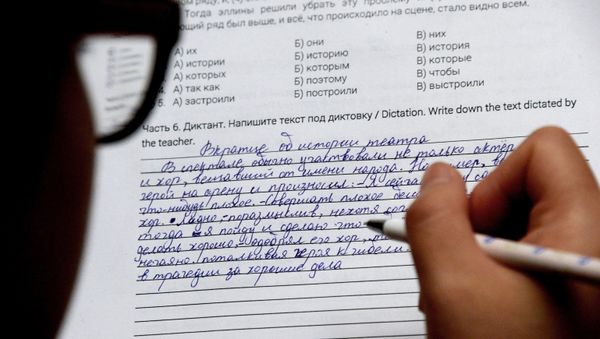 Тогда эллины решили убрать эту проблему
ряд был выше, и всё, что происходило на сцене, стало видно всем.
А) их Б) они В) них
А) истории Б) историю В) история
А) которых Б) которым В) которые
4. А) так как Б) поэтому В) чтобы
5. А) застроили Б) построили В) выстроили
Часть 6. Диктант. Напишите текст под диктовку / Dictation. Write down the text dictated by
the teacher.
Вкратце об истории театра
В спектакле обычно участвовали не только актёр
и хор, вещавший от имени народа. Например, в
герой на арену и произносил: - Я сейча
что-нибудь плохое. - Совершать плохое бес
хор. - Ладно, - поразмыслив, нехотя
тогда - я пойду и сделаю что-
делать хорошо! - одобрял его хор,
нечаянно поталкивая героя к гибели
в трагедии за хорошие дела